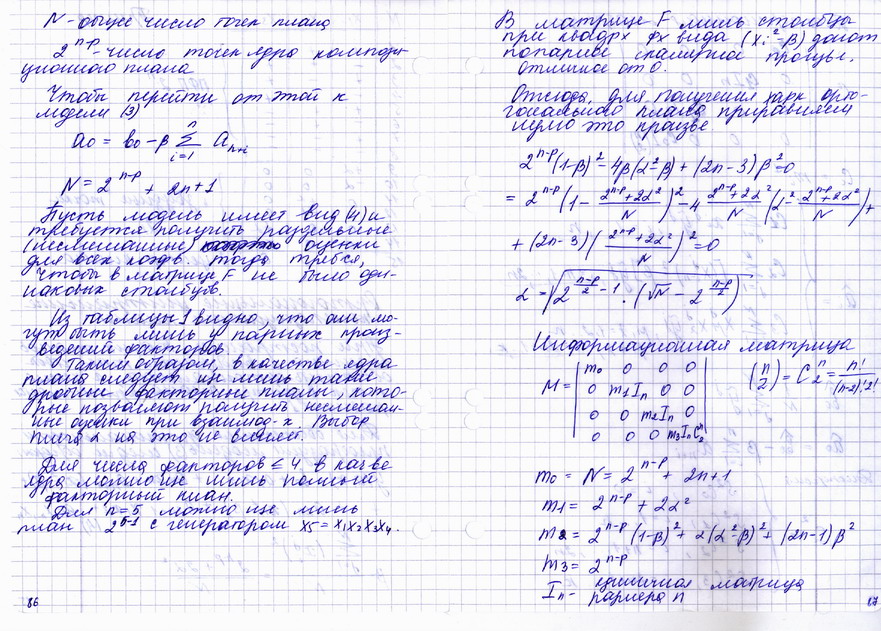 N - общее число точек плана
2^{n-p} - число точек ядра компози-
ционного плана
Чтобы перейти от этой к
модели (3)
a₀ = b₀ - β Σ_{i=1}^{n} a_{n+i}
N = 2^{n-p} + 2n + 1
Пусть модель имеет вид (4) и
требуется получить раздельные
(несмешанные) оценки
для всех коэфв. Тогда требся,
чтобы в матрице F не было оди-
наковых столбцов.
Из таблицы 1 видно, что они мо-
гут быть лишь у парных произ-
ведений факторов.
Таким образом, в качестве ядра
плана следует исп лишь такие
дробные факторные планы, кото-
рые позволяют получить несмешан-
ные оценки при взаимод-х. Выбор
плеча α на это не влияет.
Для числа факторов ≤ 4 в кач-ве
ядра можно исп лишь полный
факторный план.
Для n=5 можно исп лишь
план 2^{5-1} с генератором x₅ = x₁x₂x₃x₄.
86
В матрице F лишь столбцы
при квадрх фх вида (xᵢ² - β) дают
попарное скалярное произве,
отличное от 0.
Отсюда, для получения харк орто-
гонального плана приравняем
нулю это произве
2^{n-p}(1-β)² - 4β(α²-β) + (2n-3)β² = 0
= 2^{n-p}(1 - (2^{n-p}+2α²)/N)² - 4 (2^{n-p}+2α²)/N (α² - (2^{n-p}+2α²)/N) +
+ (2n-3)((2^{n-p}+2α²)/N)² = 0
α = √(2^{(n-p)/2 - 1} · (√N - 2^{(n-p)/2}))
Информационная матрица
M = | m₀ 0 0 0 |
| 0 m₁Iₙ 0 0 |
| 0 0 m₂Iₙ 0 |
| 0 0 0 m₃IₙC₂ⁿ |
(n/2) = C₂ⁿ = n!/((n-2)!2!)
m₀ = N = 2^{n-p} + 2n + 1
m₁ = 2^{n-p} + 2α²
m₂ = 2^{n-p}(1-β)² + 2(α²-β)² + (2n-1)β²
m₃ = 2^{n-p}
Iₙ - единичная матрица
размера n
87